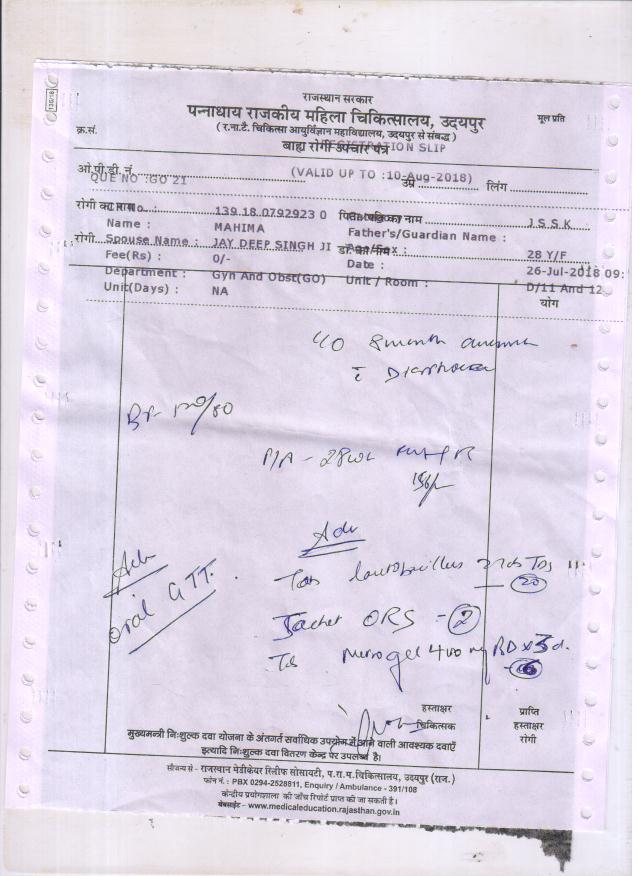 136/18
राजस्थान सरकार
पन्नाधाय राजकीय महिला चिकित्सालय, उदयपुर
मूल प्रति
क्र.सं.
( र.ना.टै. चिकित्सा आयुर्विज्ञान महाविद्यालय, उदयपुर से संबद्ध )
बाह्य रोगी उपचार पत्र REGISTRATION SLIP
ओ.पी.डी. नं. (VALID UP TO :10-Aug-2018) उम्र लिंग
QUE NO :GO 21
रोगी का नाम : 139 18 0792923 0 पिता/पति का नाम J S S K
Name : MAHIMA Father's/Guardian Name :
रोगी Spouse Name : JAY DEEP SINGH JI Age/Sex : 28 Y/F
Fee(Rs) : 0/- Date : 26-Jul-2018 09:
Department : Gyn And Obst(GO) Unit / Room : D/11 And 12
Unit(Days) : NA योग
C/O 8 month
c Diarrhoea
BP- 120/80
P/A - 28 wk
Adv
Adv
oral GTT.
Tab lactobacillus TDS
20
Sachet ORS - 2
Tab Metrogel 400 mg BD x 3 d.
6
हस्ताक्षर प्राप्ति
चिकित्सक हस्ताक्षर
रोगी
मुख्यमन्त्री निःशुल्क दवा योजना के अंतर्गत सर्वाधिक उपयोग में आने वाली आवश्यक दवाएँ
इत्यादि निःशुल्क दवा वितरण केन्द्र पर उपलब्ध है।
सौजन्य से - राजस्थान मेडीकेयर रिलीफ सोसायटी, प.रा.म.चिकित्सालय, उदयपुर (राज.)
फोन नं. : PBX 0294-2528811, Enquiry / Ambulance - 391/108
केन्द्रीय प्रयोगशाला की जाँच रिपोर्ट प्राप्त की जा सकती है।
वेबसाईट - www.medicaleducation.rajasthan.gov.in